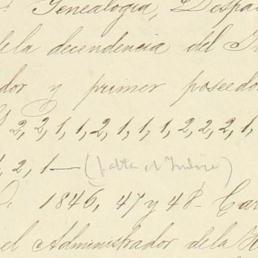 Genealogia, Despa
de la decendencia del
dor y primer poseedo
2, 2, 1, 1, 2, 1, 1, 1, 2, 2, 2, 1,
2, 1— (falta el Indice)
1846, 47 y 48- Car
el Administrador de la H